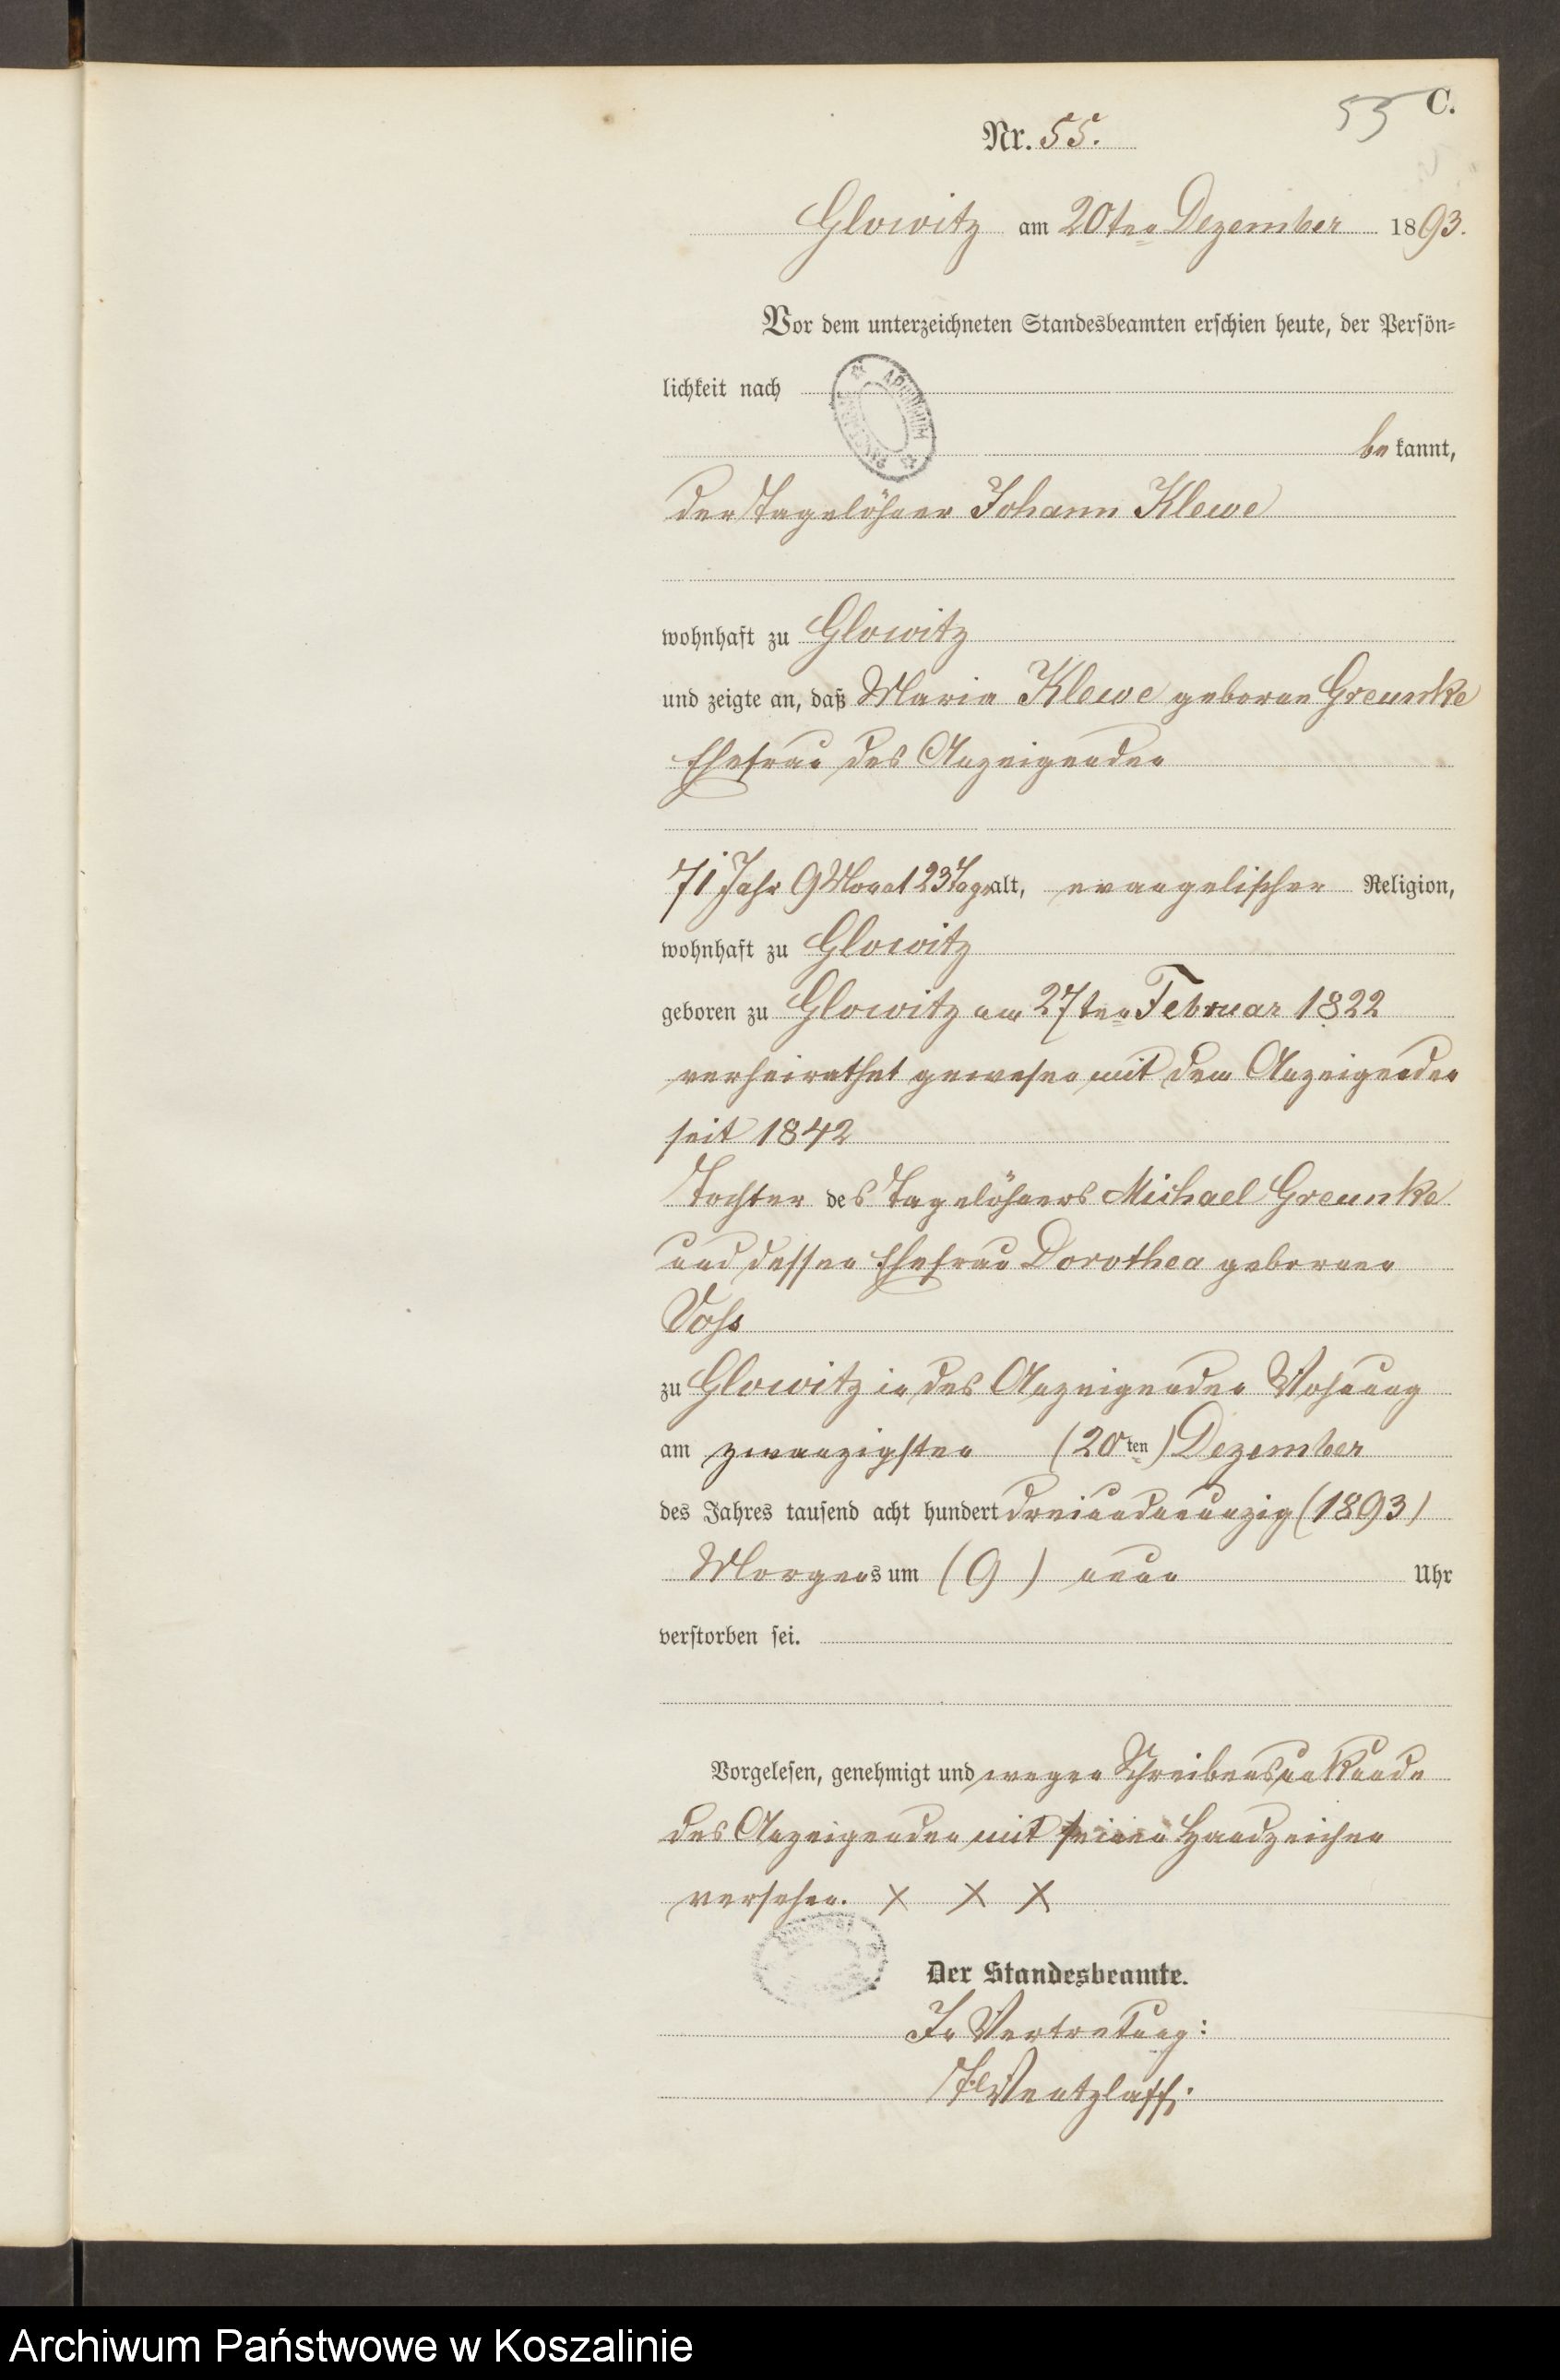 C.
55
Nr. 55.
Glowitz am 20ten Dezember 1893.
Vor dem unterzeichneten Standesbeamten erschien heute, der Persön=
lichkeit nach
bekannt,
der Tagelöhner Johann Klewe
wohnhaft zu Glowitz
und zeigte an, daß Maria Klewe geborne Greunke
Ehefrau des Anzeigenden
71 Jahr 9 Monat 23 Tage alt, evangelischer Religion,
wohnhaft zu Glowitz
geboren zu Glowitz am 27ten Februar 1822
verheirathet gewesen mit dem Anzeigenden
seit 1842
Tochter des Tagelöhners Michael Greunke
und dessen Ehefrau Dorothea gebornen
Voss
zu Glowitz in des Anzeigenden Wohnung
am zwanzigsten (20ten) Dezember
des Jahres tausend acht hundert dreiundneunzig (1893)
Morgens um (9) neun Uhr
verstorben sei.
Vorgelesen, genehmigt und wegen Schreibensunkunde
des Anzeigenden mit seinen Handzeichen
versehen. X X X
Der Standesbeamte.
In Vertretung:
Wentzlaff.
Archiwum Państwowe w Koszalinie